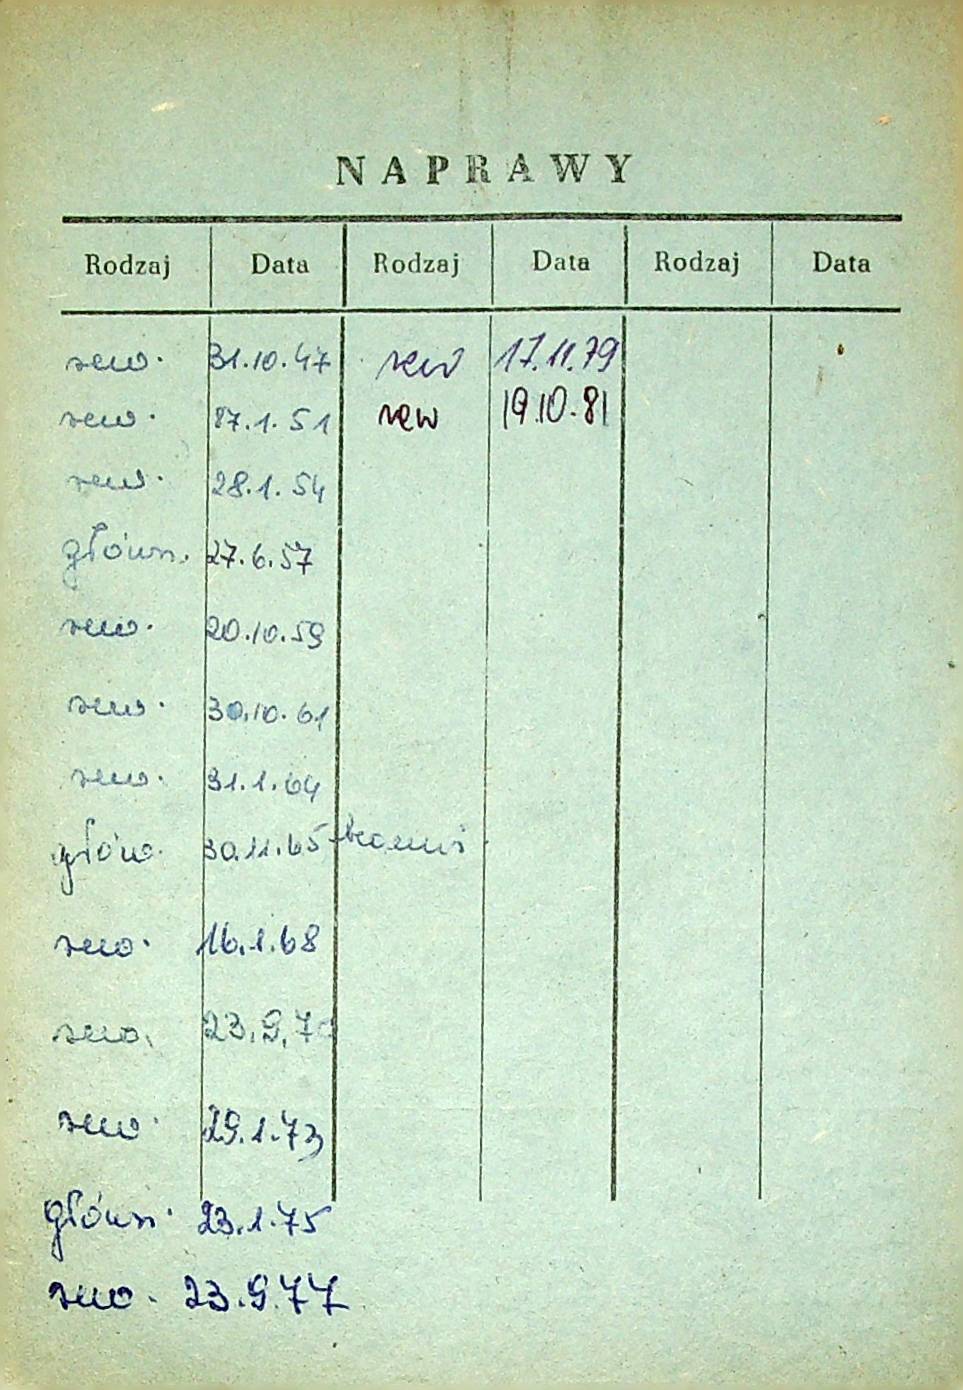 NAPRAWY
Rodzaj Data Rodzaj Data Rodzaj Data
rew. 31.10.47 rew 17.11.79
rew. 27.1.51 rew 19.10.81
rew. 28.1.54
główn. 27.6.57
rew. 20.10.59
rew. 30.10.61
rew. 31.1.64
głów. 30.11.65
rew. 16.1.68
rew. 23.9.70
rew. 29.1.73
główn. 23.1.75
rew. 23.9.77